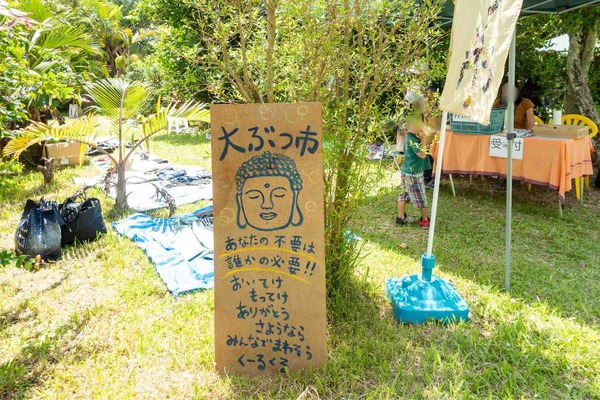 大ぶつ市
あなたの不要は
誰かの必要!!
おいてけ
もってけ
ありがとう
さようなら
みんなでまわそう
くーるくる
受付